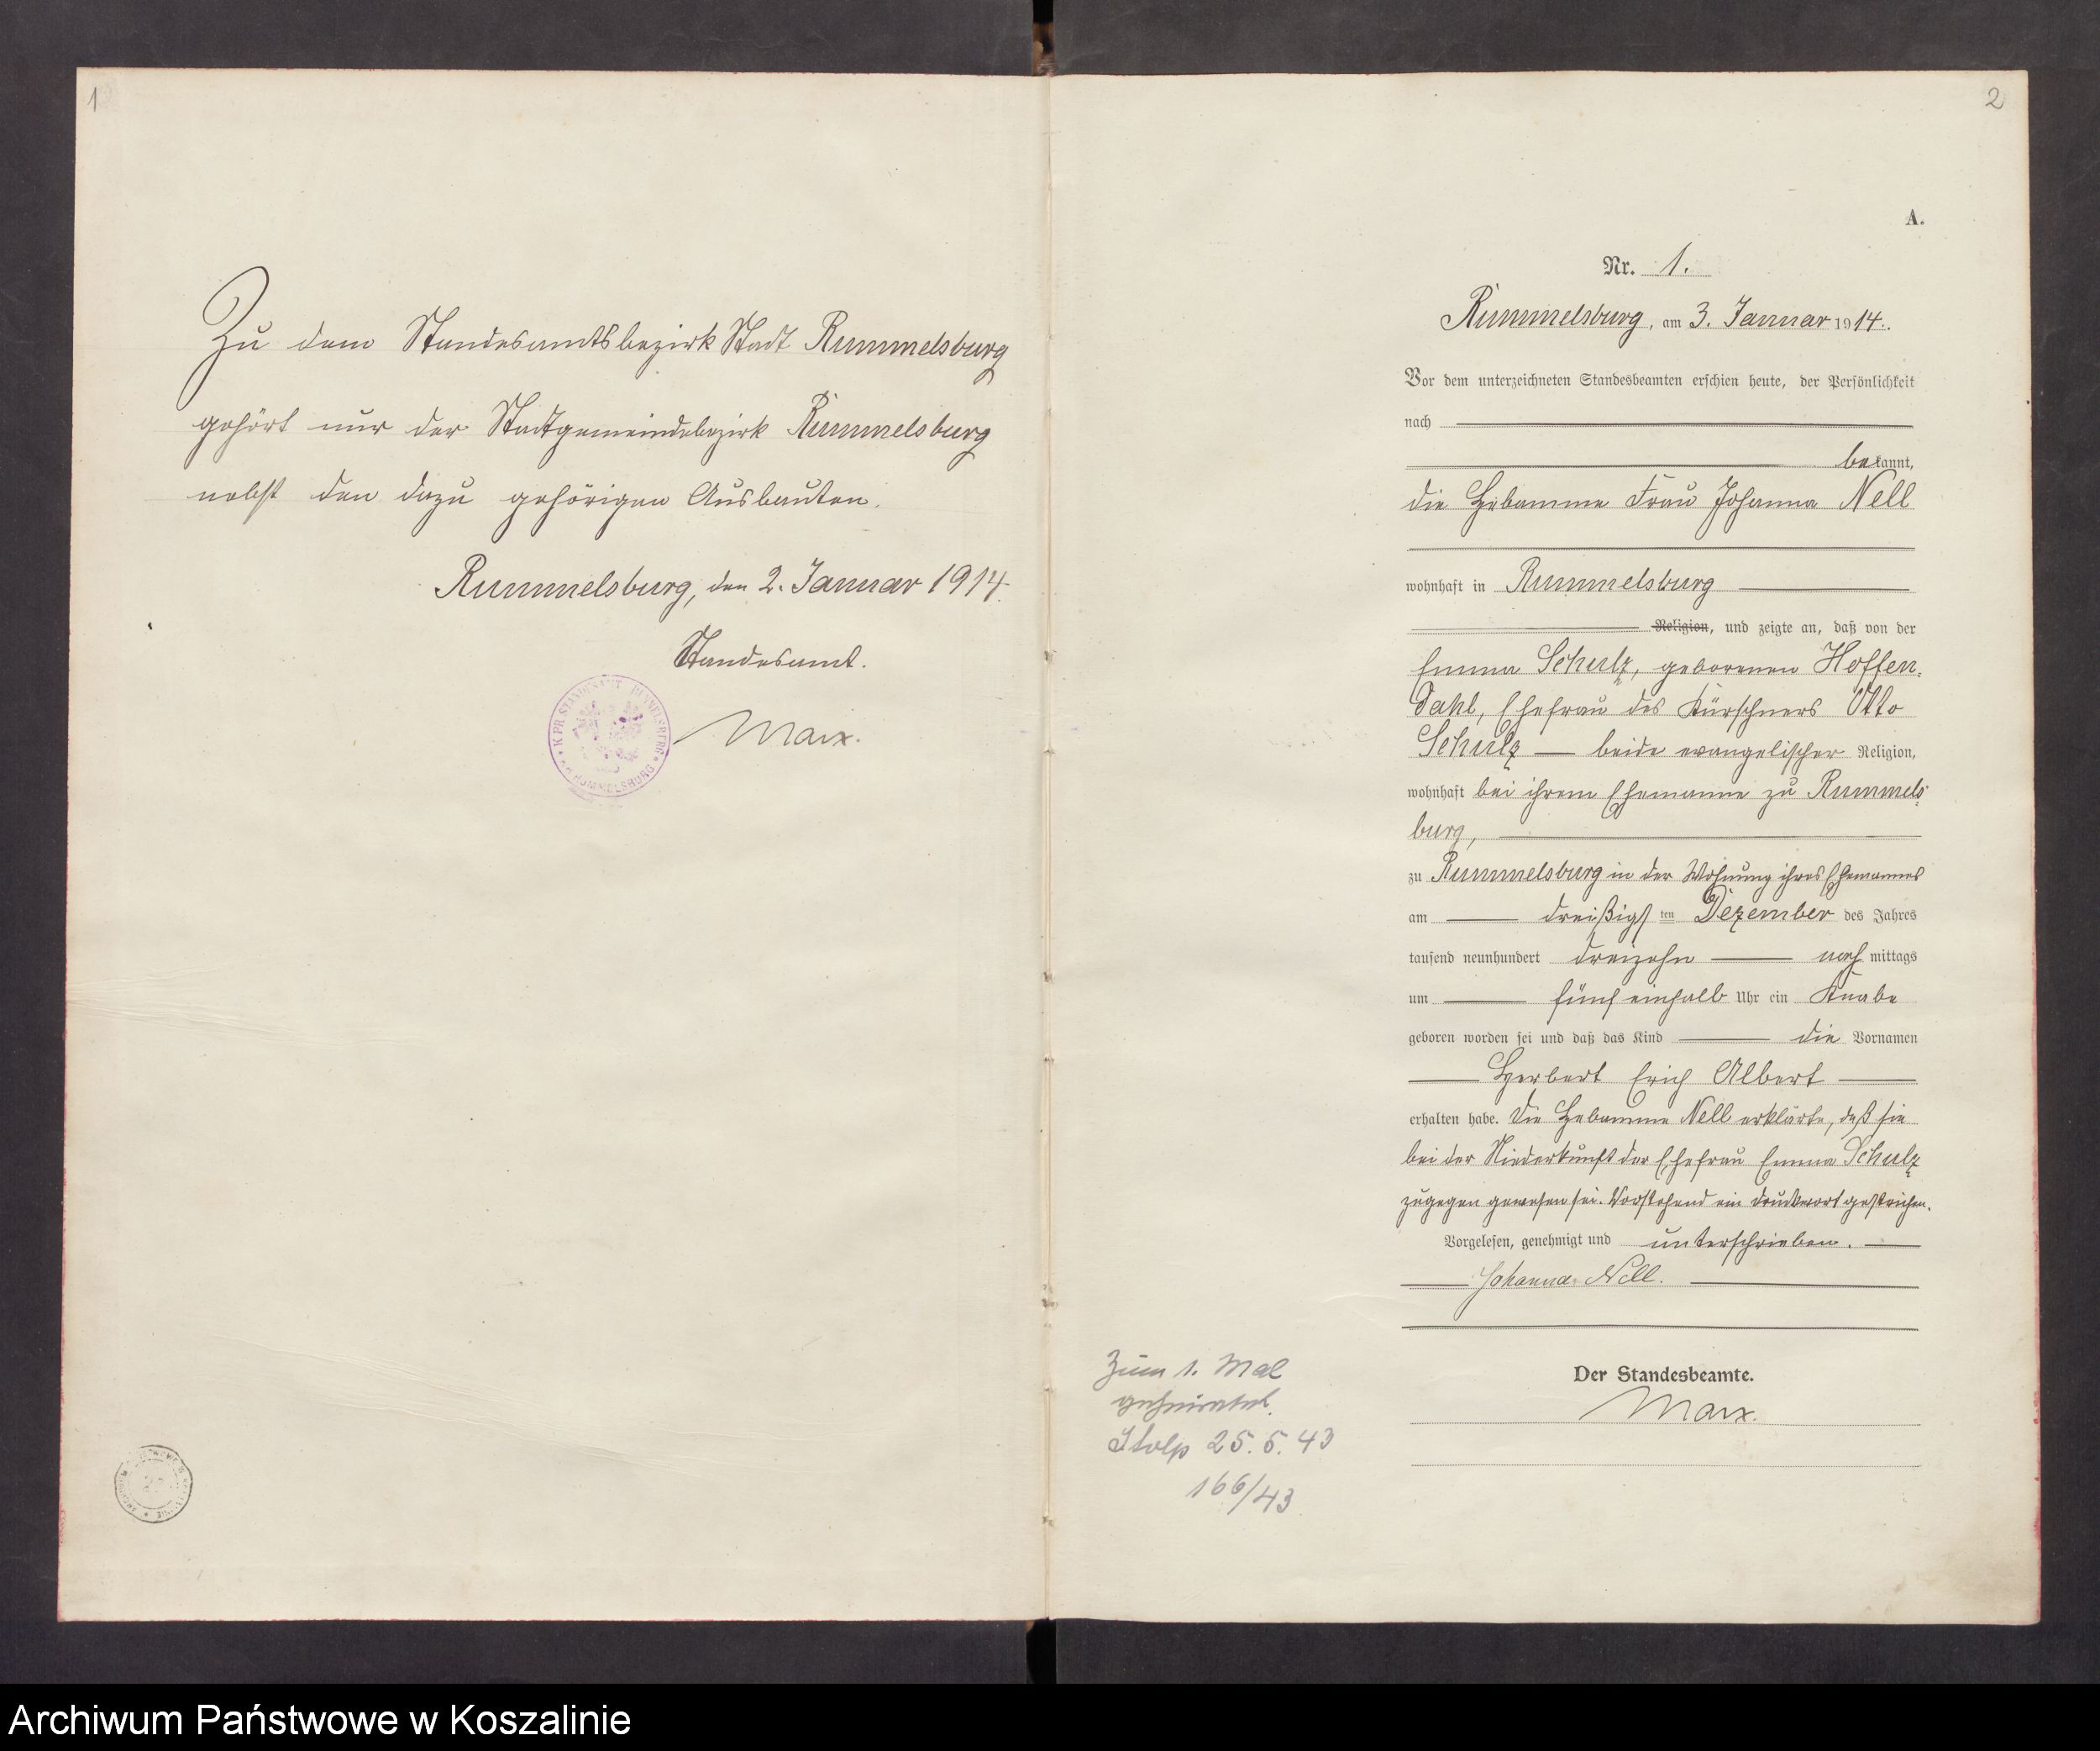 1
Zu dem Standesamtsbezirk Stadt Rummelsburg
gehört nur der Stadtgemeindebezirk Rummelsburg
nebst den dazu gehörigen Ausbauten.
Rummelsburg, den 2. Januar 1914.
Standesamt.
Marx.
K. PR. STANDESAMT RUMMELSBURG
2
A.
Nr. 1.
Rummelsburg, am 3. Januar 1914.
Vor dem unterzeichneten Standesbeamten erschien heute, der Persönlichkeit
nach
bekannt,
die Hebamme Frau Johanna Nell
wohnhaft in Rummelsburg
Religion, und zeigte an, daß von der
Emma Schulz, geborenen Hoffen-
dahl, Ehefrau des Kürschners Otto
Schulz — beide evangelischer Religion,
wohnhaft bei ihrem Ehemanne zu Rummels-
burg,
zu Rummelsburg in der Wohnung ihres Ehemannes
am dreißigsten Dezember des Jahres
tausend neunhundert dreizehn nachmittags
um fünf einhalb Uhr ein Knabe
geboren worden sei und daß das Kind die Vornamen
Herbert Erich Albert
erhalten habe. Die Hebamme Nell erklärte, daß sie
bei der Niederkunft der Ehefrau Emma Schulz
zugegen gewesen sei. Vorstehend ein Druckwort gestrichen.
Vorgelesen, genehmigt und unterschrieben.
Johanna Nell.
Der Standesbeamte.
Marx.
Zum 1. Mal
geheiratet.
Stolp 25. 5. 43
166/43
Archiwum Państwowe w Koszalinie